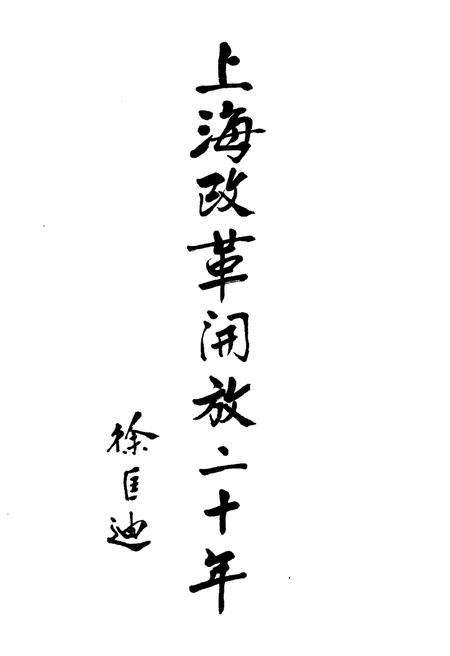 上海改革开放二十年
徐匡迪